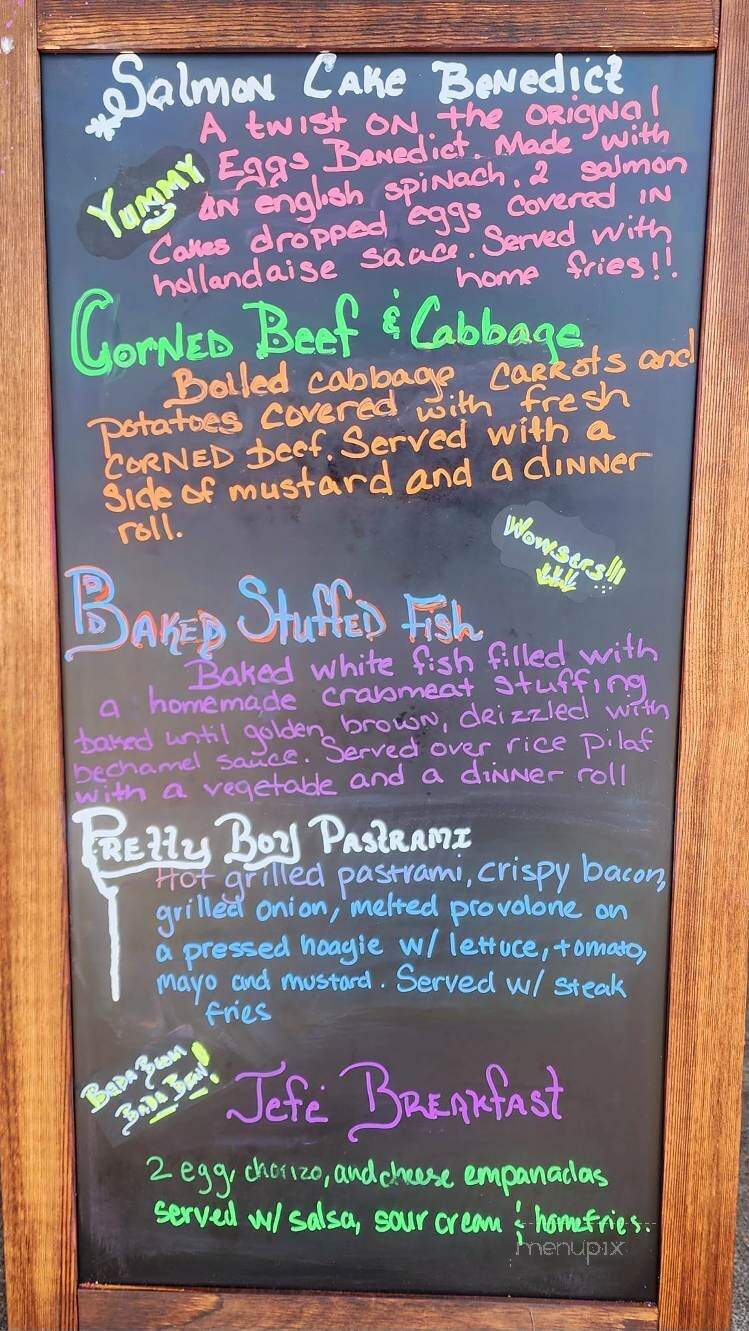 *Salmon Cake Benedict
A twist on the orignal
Eggs Benedict. Made with
YUMMY
an english spinach, 2 salmon
Cakes dropped eggs covered in
hollandaise sauce. Served with
home fries!!
Corned Beef & Cabbage
Boiled cabbage carrots and
potatoes covered with fresh
corned beef. Served with a
side of mustard and a dinner
roll.
Wowsers!!!
Baked Stuffed Fish
Baked white fish filled with
a homemade crabmeat stuffing
baked until golden brown, drizzled with
bechamel sauce. Served over rice pilaf
with a vegetable and a dinner roll
Pretty Boy Pastrami
Hot grilled pastrami, crispy bacon,
grilled onion, melted provolone on
a pressed hoagie w/ lettuce, tomato,
mayo and mustard. Served w/ steak
fries
Bada Beem
Bada Bem!
Jefé Breakfast
2 egg, chorizo, and cheese empanadas
served w/ salsa, sour cream & homefries.
menupix